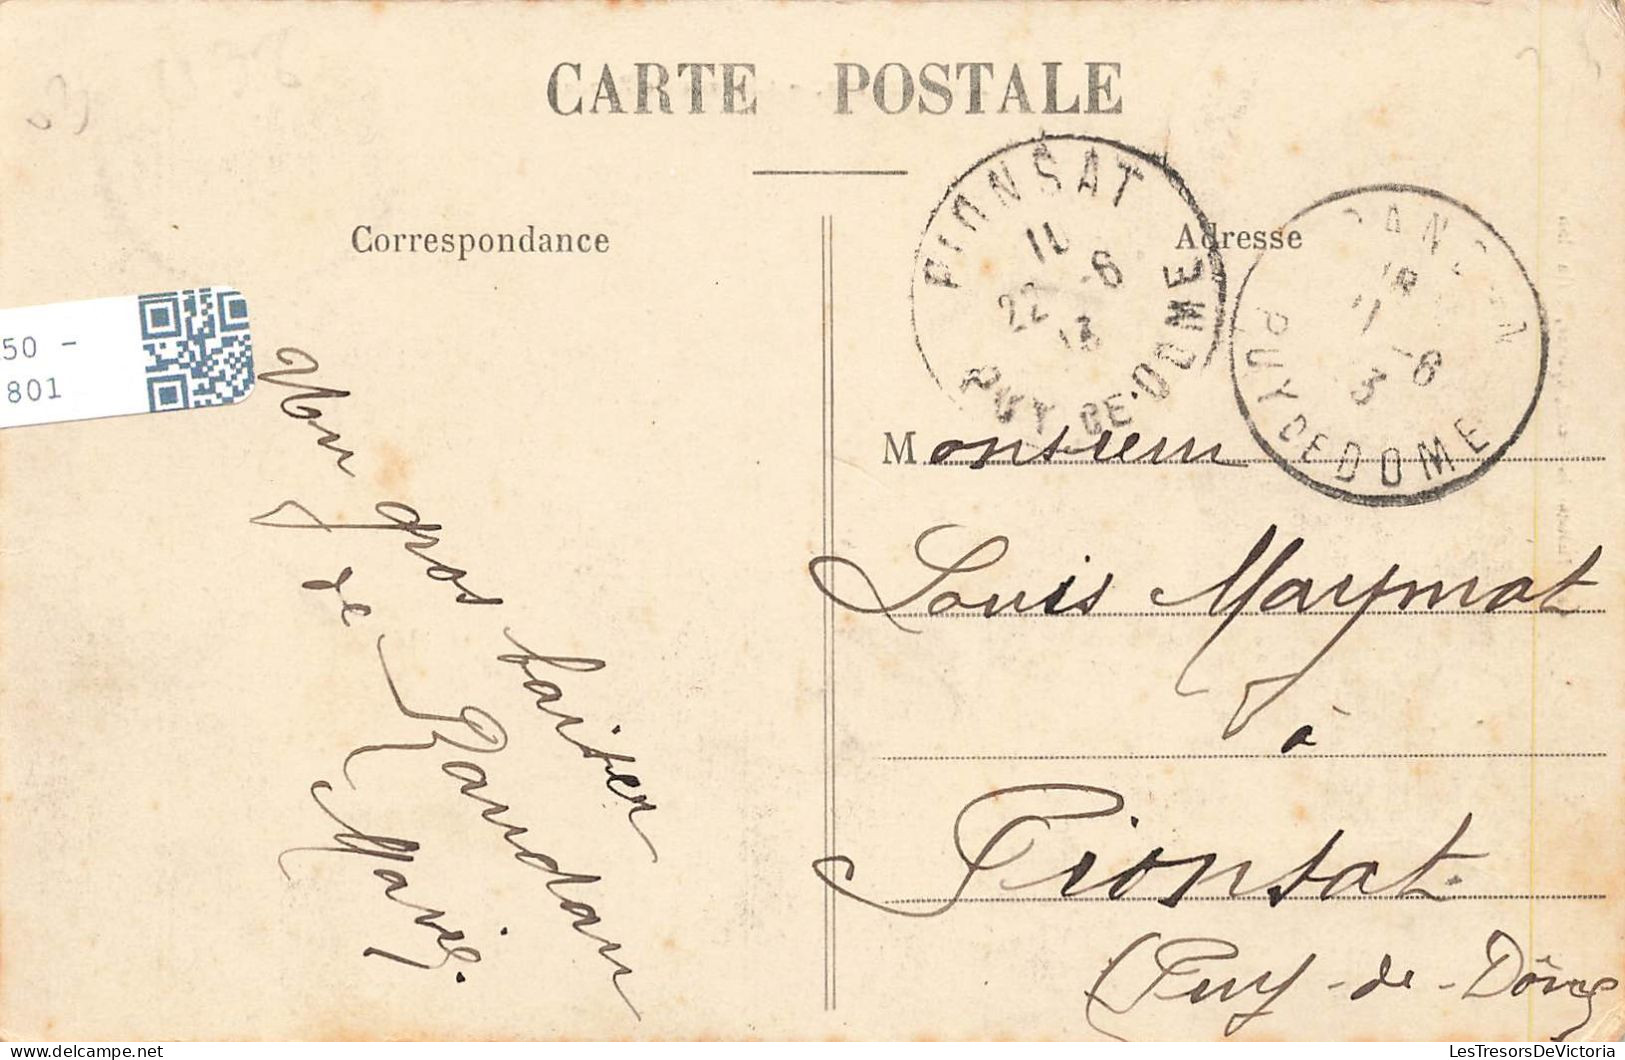 CARTE POSTALE
Correspondance
Adresse
PIONSAT
11
22 -6
13
PUY-DE-DOME
18
-6
3
PUY DE DOME
50 -
801
Un gros baiser
de Randan
Marie.
Monsieur
Louis Maymat
à
Pionsat.
(Puy-de-Dôme)
LesTresorsDeVictoria